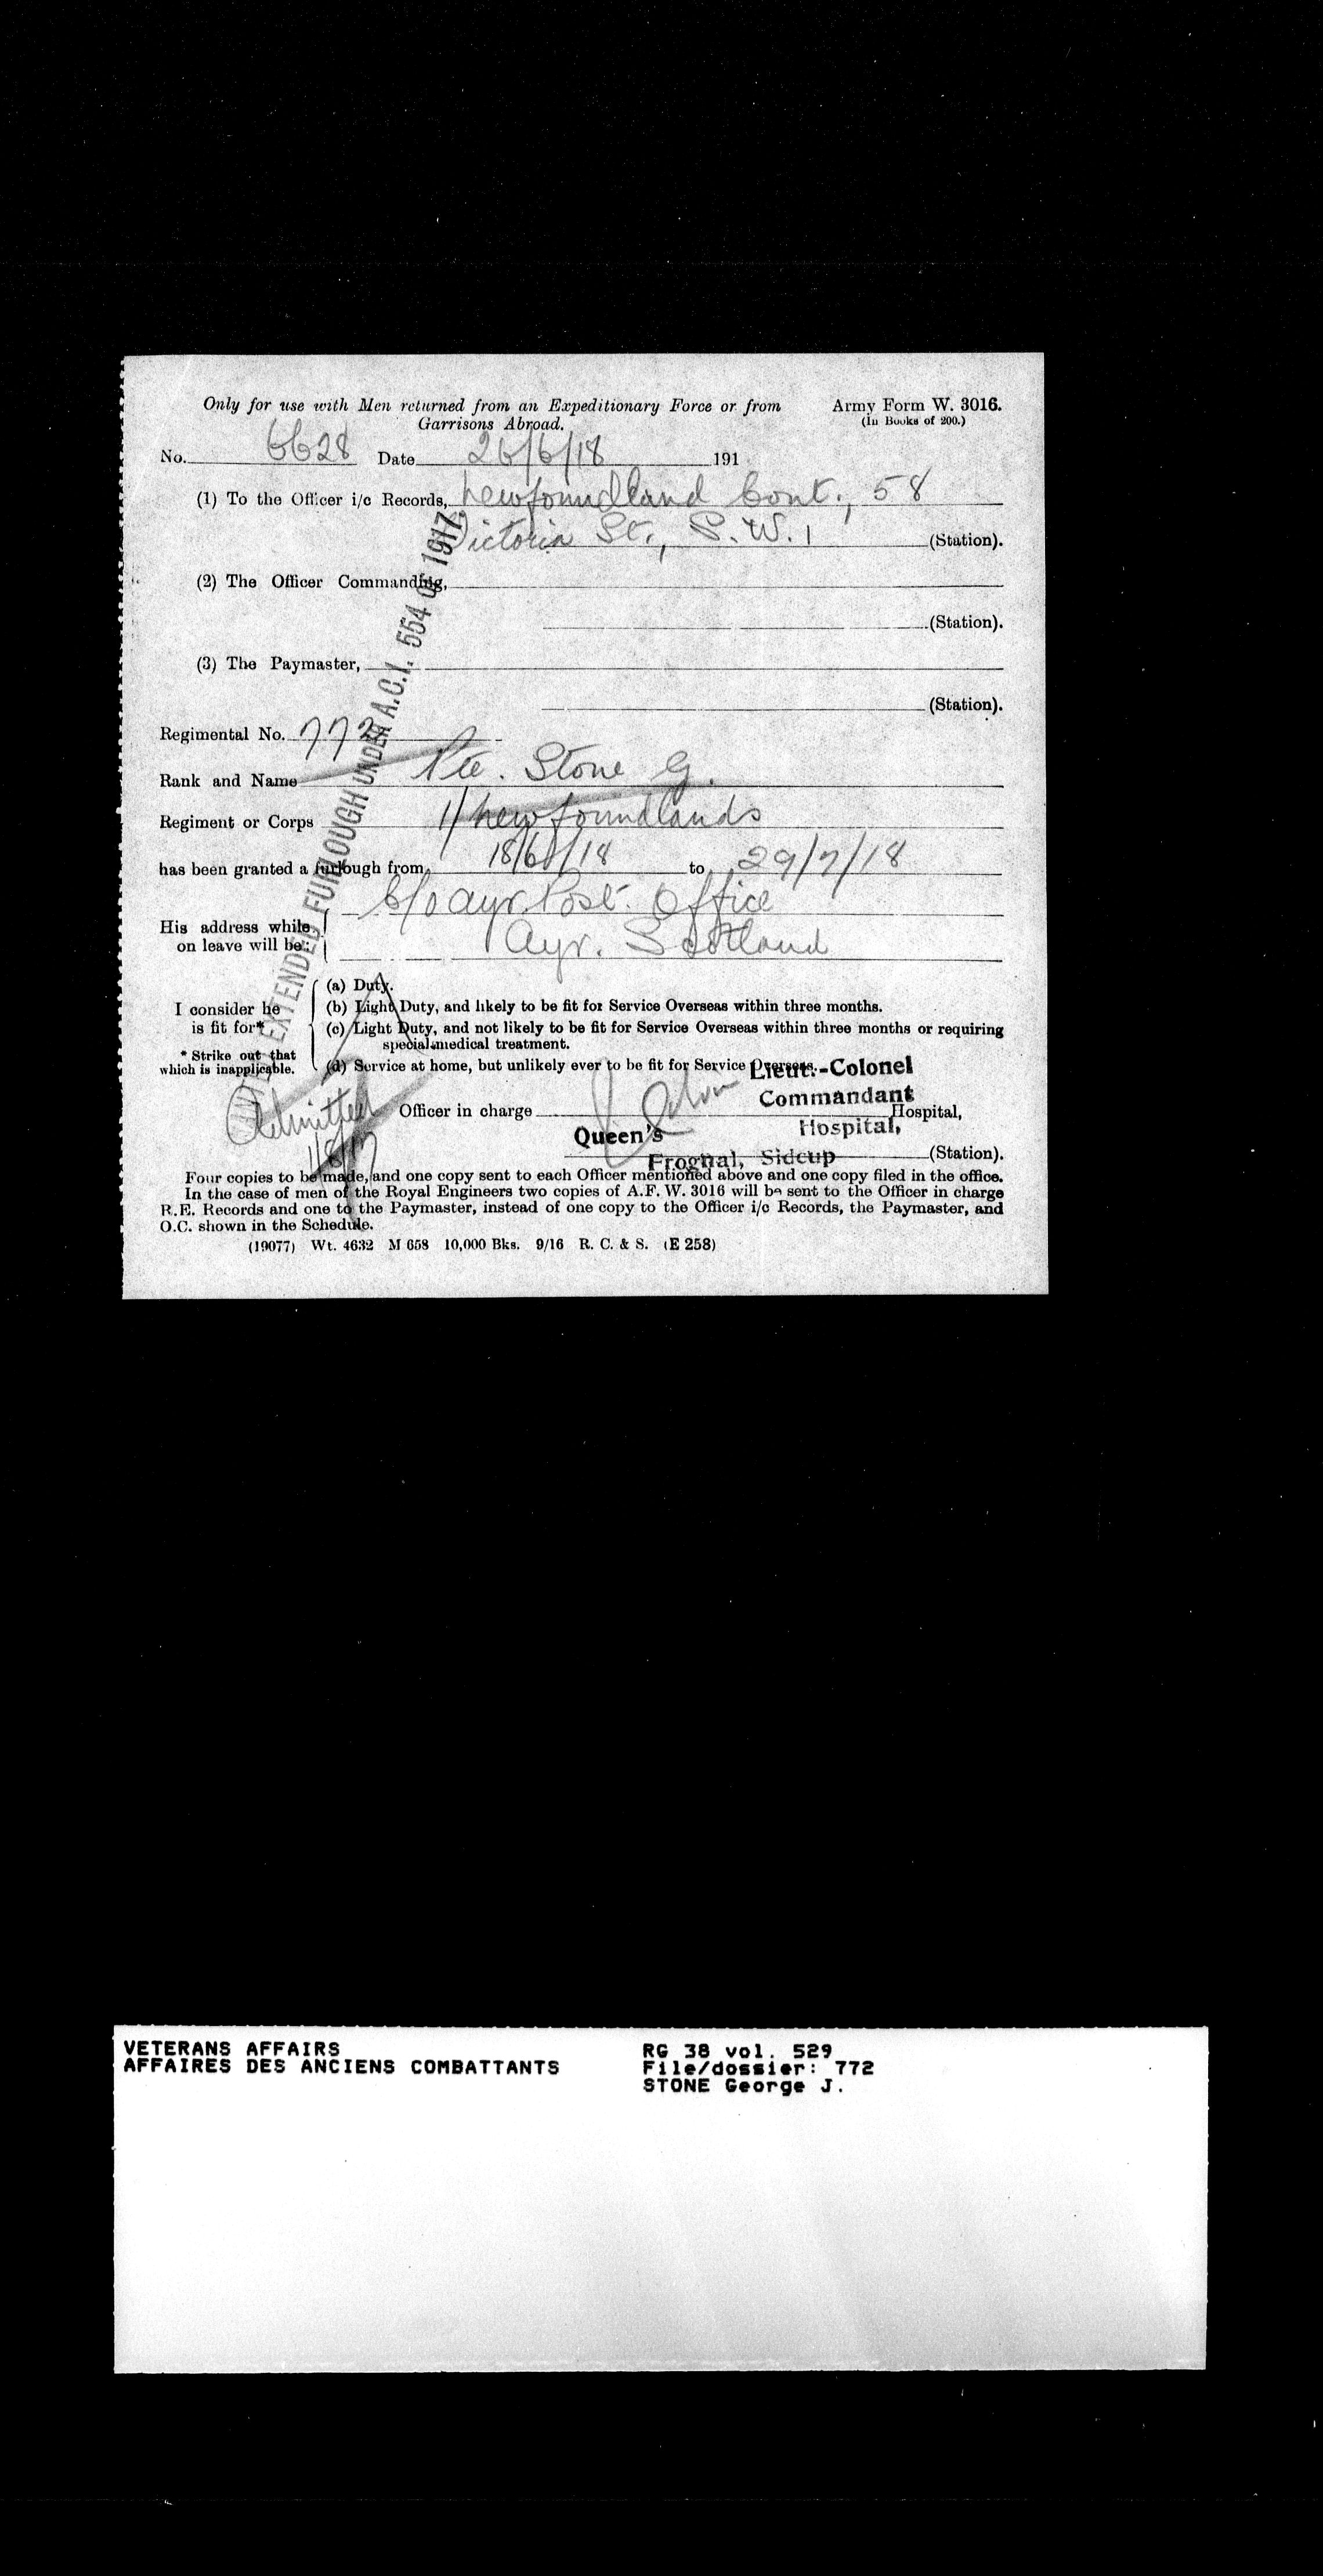 Only for use with Men returned from an Expeditionary Force or from
Garrisons Abroad.
Army Form W. 3016.
(In Books of 200.)
No. 6628 Date 26/6/18 191
(1) To the Officer i/c Records, Newfoundland Cont., 58
Victoria St., S.W.1 (Station).
(2) The Officer Commanding,
(Station).
(3) The Paymaster,
(Station).
Regimental No. 772
Rank and Name Pte. Stone G.
Regiment or Corps 1/Newfoundlands
has been granted a furlough from 18/6/18 to 29/7/18
His address while on leave will be:
C/o Ayr. Post. Office
Ayr. Scotland
EXTENDED FURLOUGH UNDER A.C.I. 554 OF 1917
I consider he is fit for*
* Strike out that which is inapplicable.
(a) Duty.
(b) Light Duty, and likely to be fit for Service Overseas within three months.
(c) Light Duty, and not likely to be fit for Service Overseas within three months or requiring
special medical treatment.
(d) Service at home, but unlikely ever to be fit for Service Overseas.
Lieut.-Colonel
Commandant
Admitted
Officer in charge Hospital,
Queen's Hospital,
Frognal, Sidcup (Station).
Four copies to be made, and one copy sent to each Officer mentioned above and one copy filed in the office.
In the case of men of the Royal Engineers two copies of A.F. W. 3016 will be sent to the Officer in charge
R.E. Records and one to the Paymaster, instead of one copy to the Officer i/c Records, the Paymaster, and
O.C. shown in the Schedule.
(19077) Wt. 4632 M 658 10,000 Bks. 9/16 R. C. & S. (E 258)
VETERANS AFFAIRS
AFFAIRES DES ANCIENS COMBATTANTS
RG 38 vol. 529
File/dossier: 772
STONE George J.